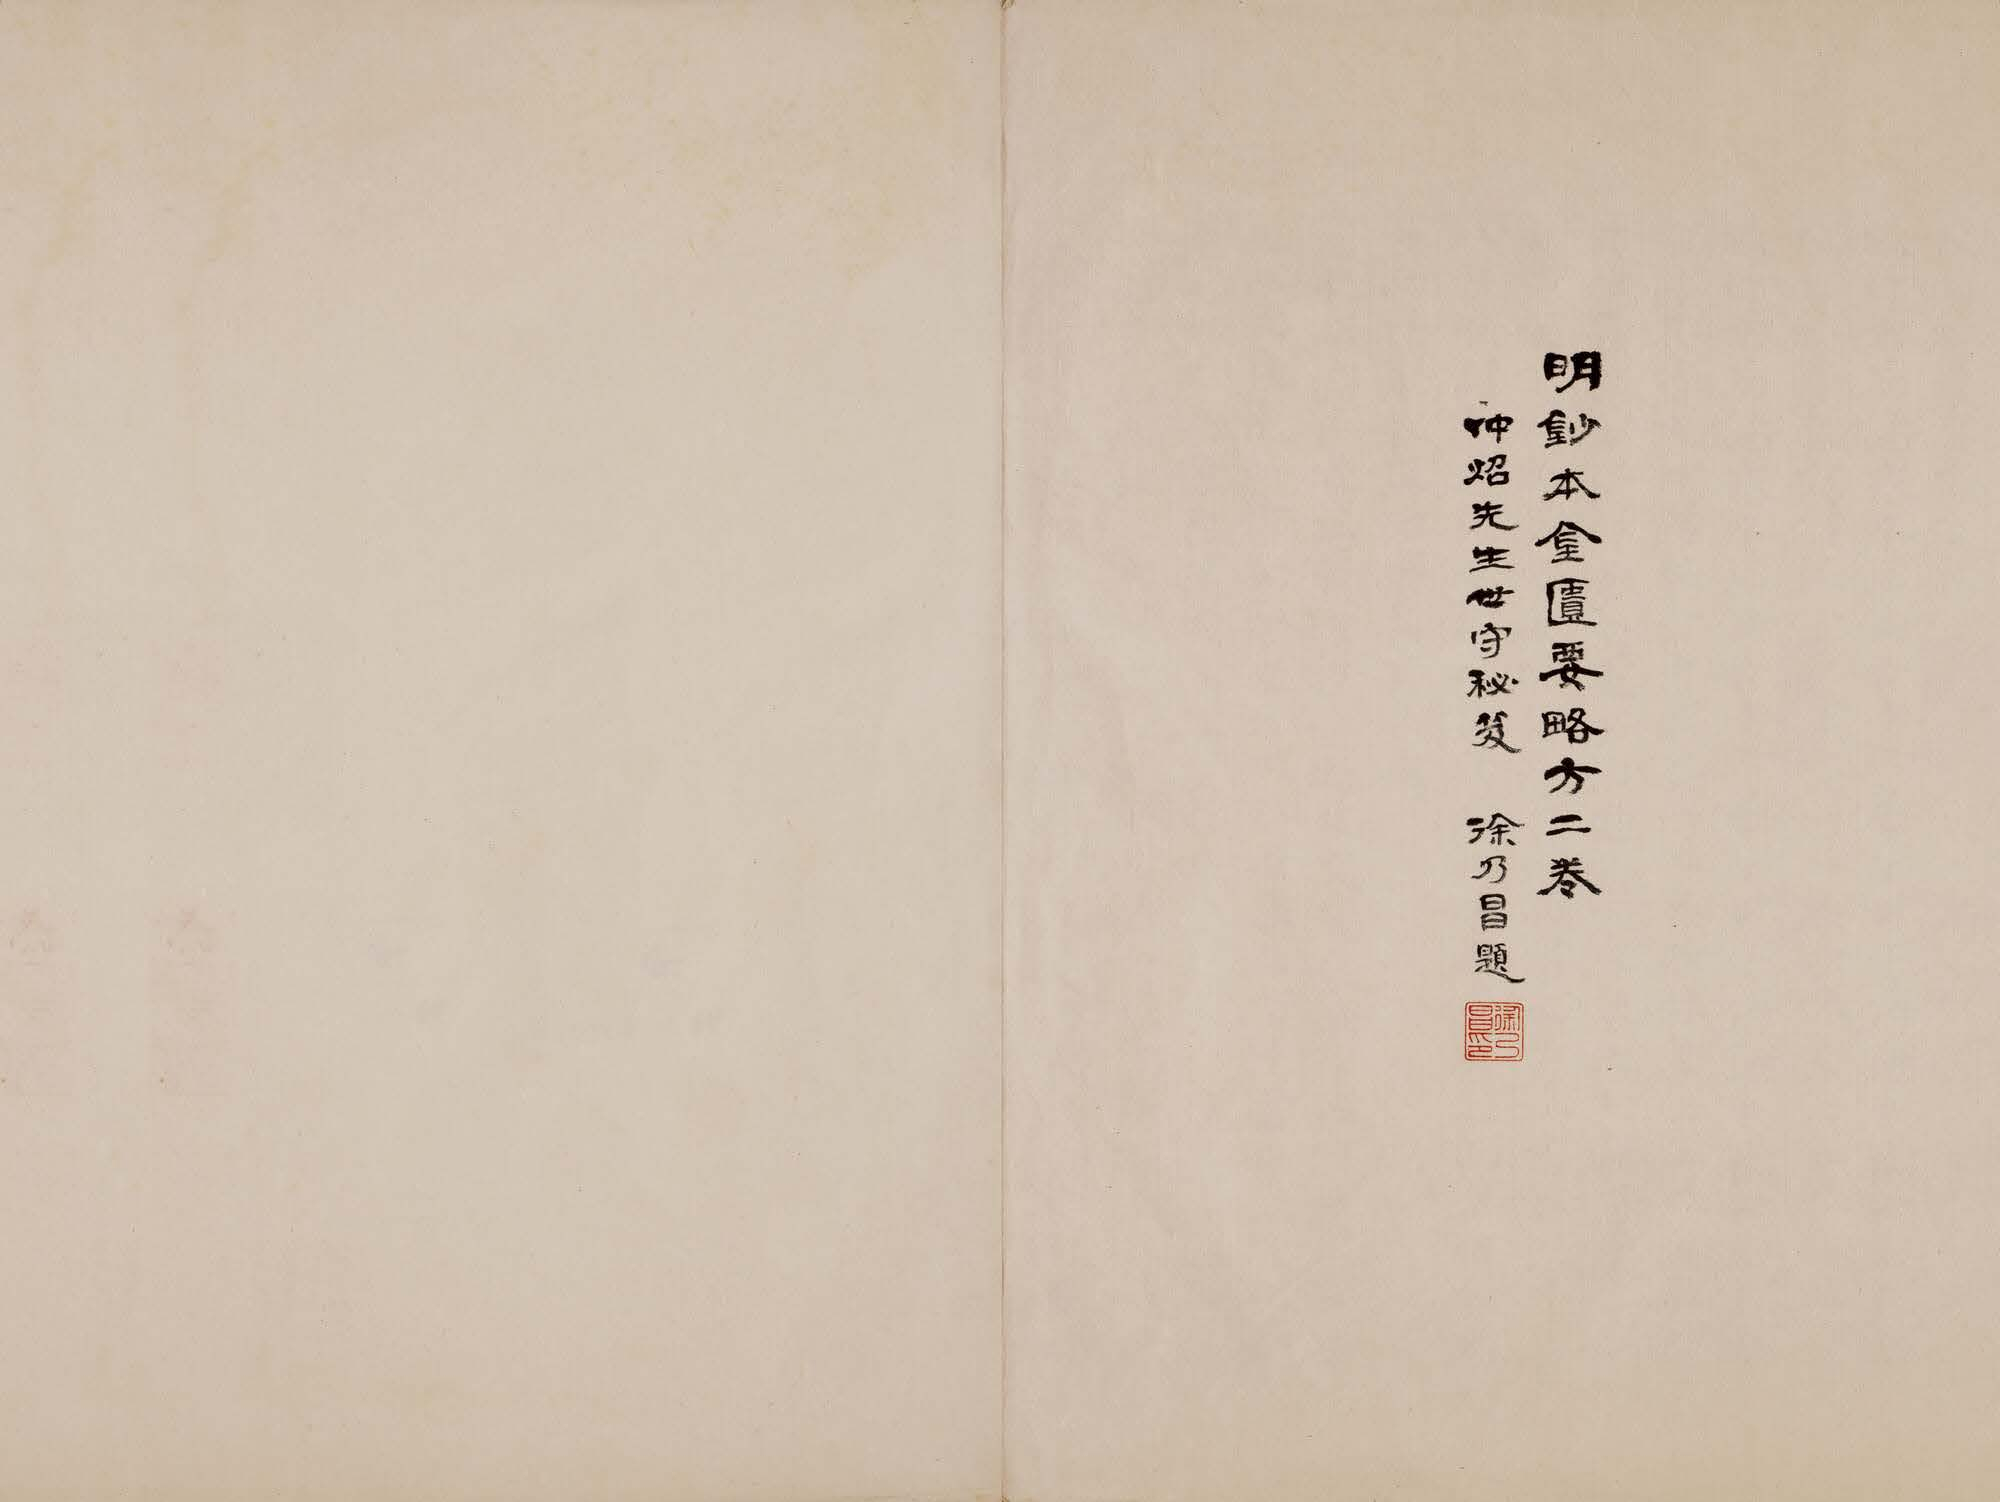 明鈔本金匱要略方二卷
仲炤先生世守秘笈　徐乃昌題
徐乃昌印